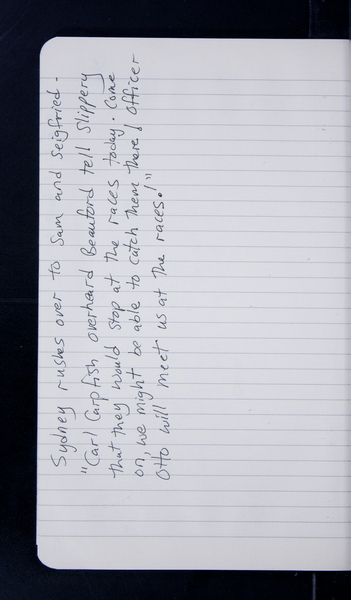 Sydney rushes over to Sam and Seigfried.
"Carl Carpfish overheard Beauford tell Slippery
that they would stop at the races today. Come
on, we might be able to catch them there! Officer
Otto will meet us at the races!"